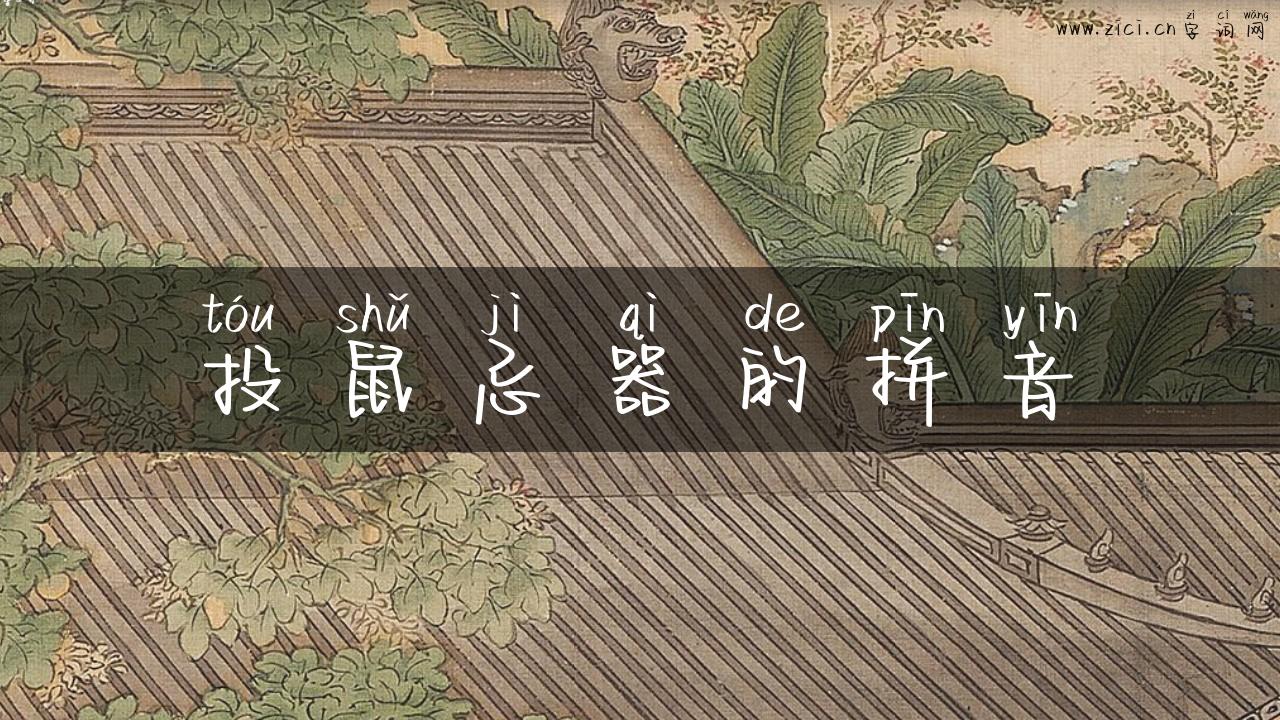 zì cí wǎng
www.zici.cn 字词网
tóu shǔ jì qì de pīn yīn
投鼠忌器的拼音